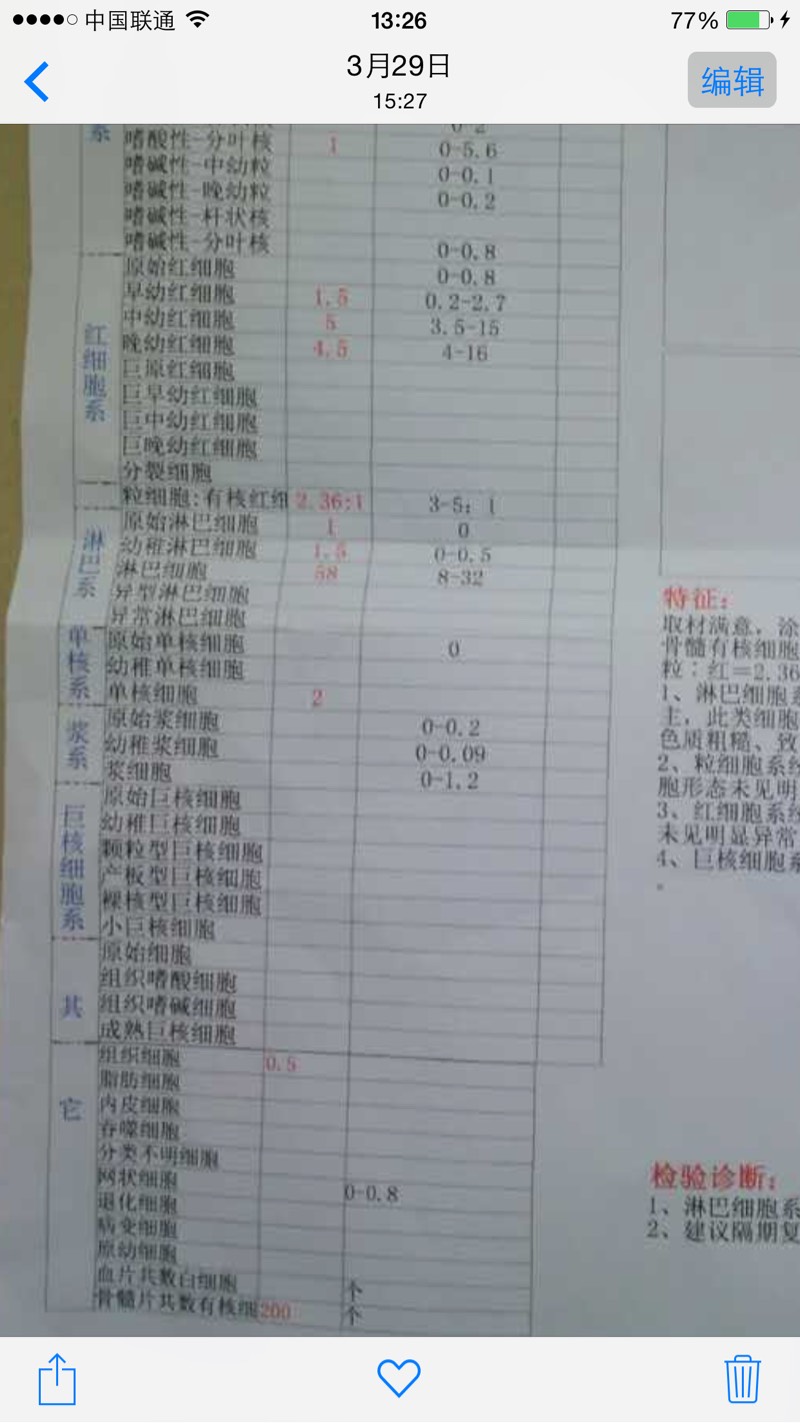 中国联通
13:26
77%
3月29日
15:27
编辑
系
0-2
嗜酸性-分叶核 1 0-5.6
嗜碱性-中幼粒 0-0.1
嗜碱性-晚幼粒 0-0.2
嗜碱性-杆状核
嗜碱性-分叶核 0-0.8
红细胞系
原始红细胞 0-0.8
早幼红细胞 1.5 0.2-2.7
中幼红细胞 5 3.5-15
晚幼红细胞 4.5 4-16
巨原红细胞
巨早幼红细胞
巨中幼红细胞
巨晚幼红细胞
分裂细胞
粒细胞:有核红细 2.36:1 3-5:1
淋巴系
原始淋巴细胞 1 0
幼稚淋巴细胞 1.5 0-0.5
淋巴细胞 58 8-32
异型淋巴细胞
异常淋巴细胞
单核系
原始单核细胞 0
幼稚单核细胞
单核细胞 2
浆系
原始浆细胞 0-0.2
幼稚浆细胞 0-0.09
浆细胞 0-1.2
巨核细胞系
原始巨核细胞
幼稚巨核细胞
颗粒型巨核细胞
产板型巨核细胞
裸核型巨核细胞
小巨核细胞
其它
原始细胞
组织嗜酸细胞
组织嗜碱细胞
成熟巨核细胞
组织细胞 0.5
脂肪细胞
内皮细胞
吞噬细胞
分类不明细胞
网状细胞 0-0.8
退化细胞
病变细胞
原幼细胞
血片共数白细胞 个
骨髓片共数有核细 200 个
特征:
取材满意，涂
骨髓有核细胞
粒:红=2.36
1、淋巴细胞系
主，此类细胞
色质粗糙、致
2、粒细胞系统
胞形态未见明
3、红细胞系统
未见明显异常
4、巨核细胞系
。
检验诊断:
1、淋巴细胞系
2、建议隔期复